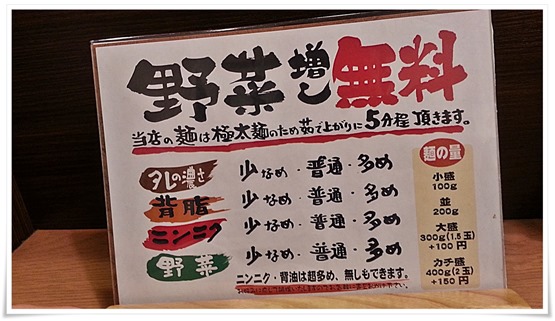 野菜増し無料
当店の麺は極太麺のため茹で上がりに5分程頂きます。
タレの濃さ 少なめ・普通・多め
背脂 少なめ・普通・多め
ニンニク 少なめ・普通・多め
野菜 少なめ・普通・多め
ニンニク・背油は超多め、無しもできます。
麺の量
小盛
100g
並
200g
大盛
300g(1.5玉)
+100円
カチ盛
400g(2玉)
+150円